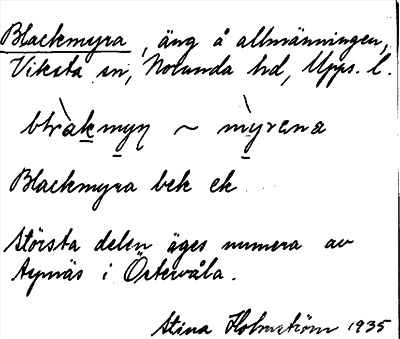 Blackmyra, äng å allmänningen,
Viksta sn, Norunda hd, Upps. l.
~
Blackmyra bek ek
Största delen äges numera av
Aspnäs i Östervåla.
Stina Holmström 1935